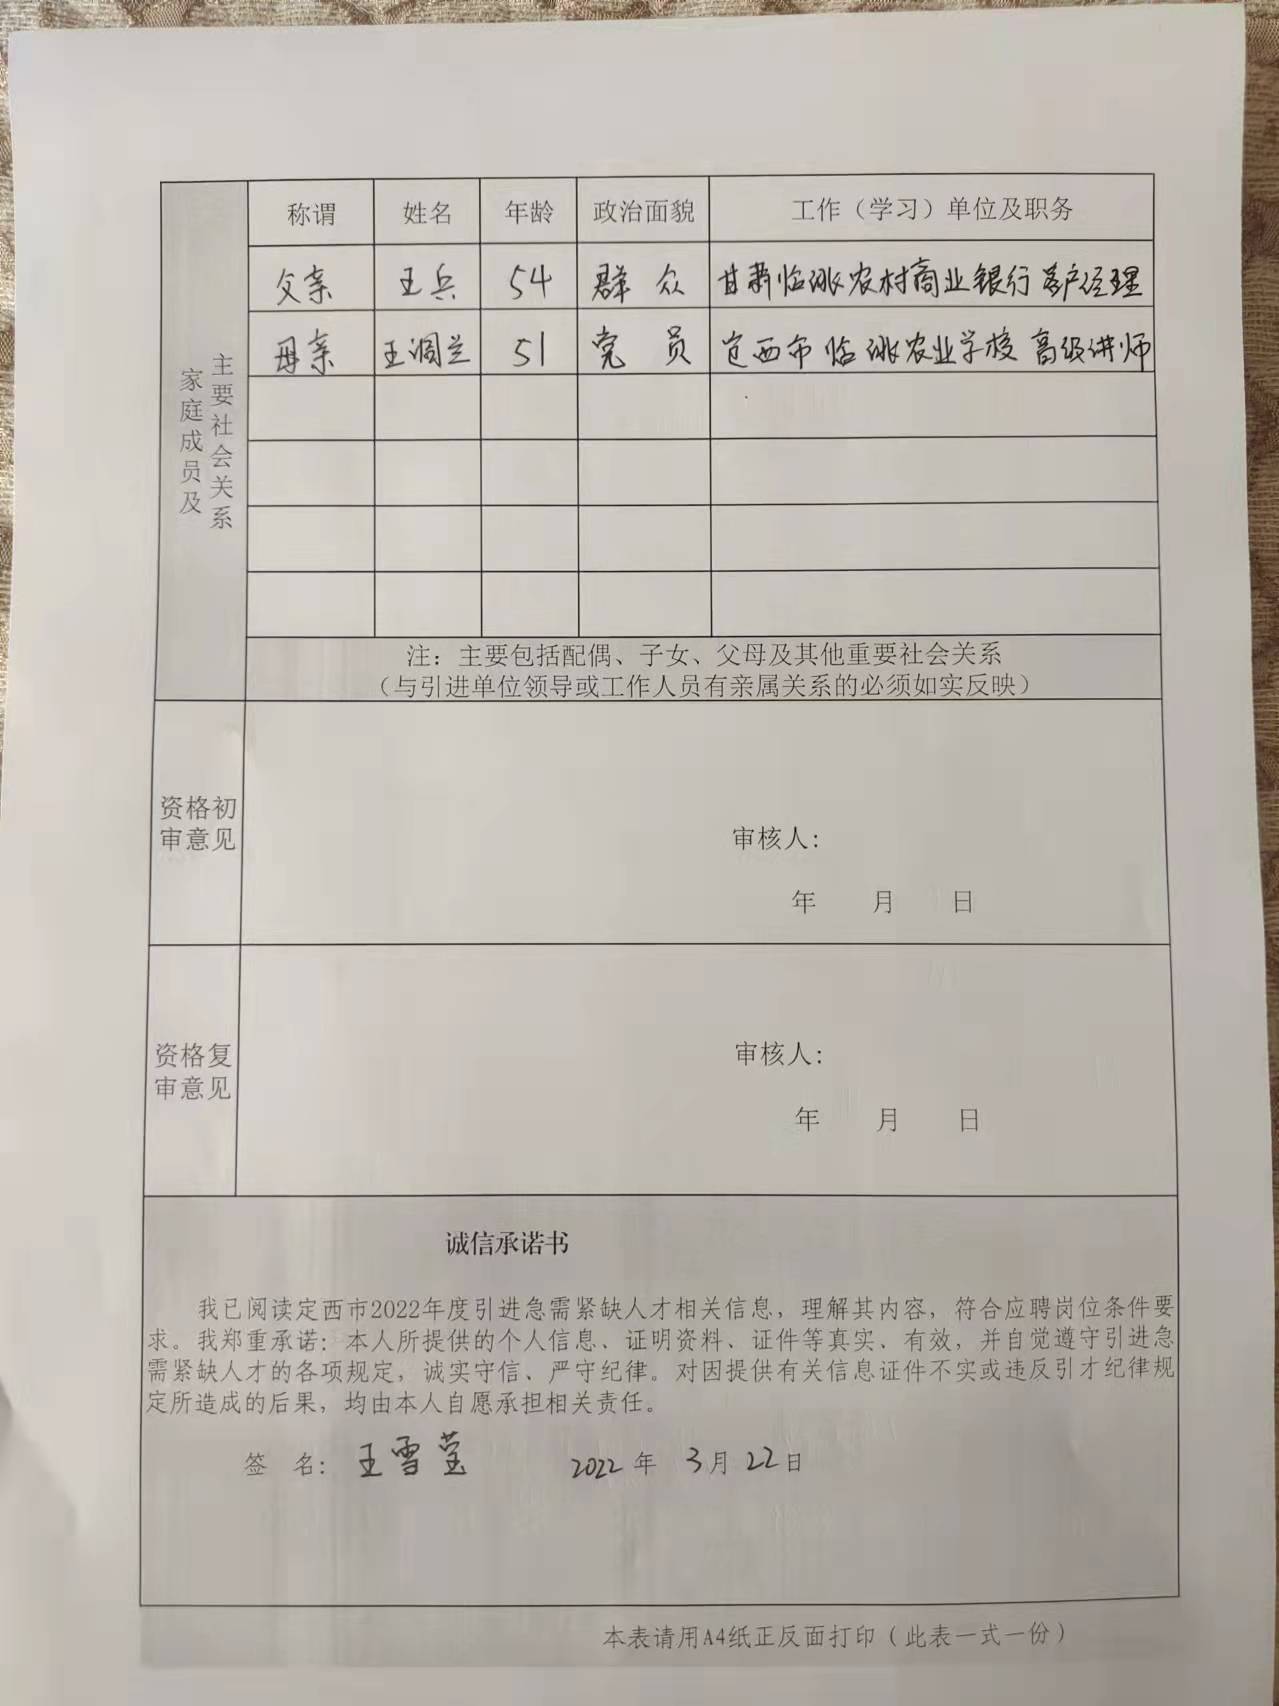 称谓 姓名 年龄 政治面貌 工作（学习）单位及职务
父亲 王兵 54 群众 甘肃临洮农村商业银行 客户经理
母亲 王润兰 51 党员 定西市临洮农业学校 高级讲师
家庭成员及
主要社会关系
注：主要包括配偶、子女、父母及其他重要社会关系
（与引进单位领导或工作人员有亲属关系的必须如实反映）
资格初
审意见
审核人：
年 月 日
资格复
审意见
审核人：
年 月 日
诚信承诺书
我已阅读定西市2022年度引进急需紧缺人才相关信息，理解其内容，符合应聘岗位条件要
求。我郑重承诺：本人所提供的个人信息、证明资料、证件等真实、有效，并自觉遵守引进急
需紧缺人才的各项规定，诚实守信、严守纪律。对因提供有关信息证件不实或违反引才纪律规
定所造成的后果，均由本人自愿承担相关责任。
签 名：王雪莹 2022年 3月22日
本表请用A4纸正反面打印（此表一式一份）